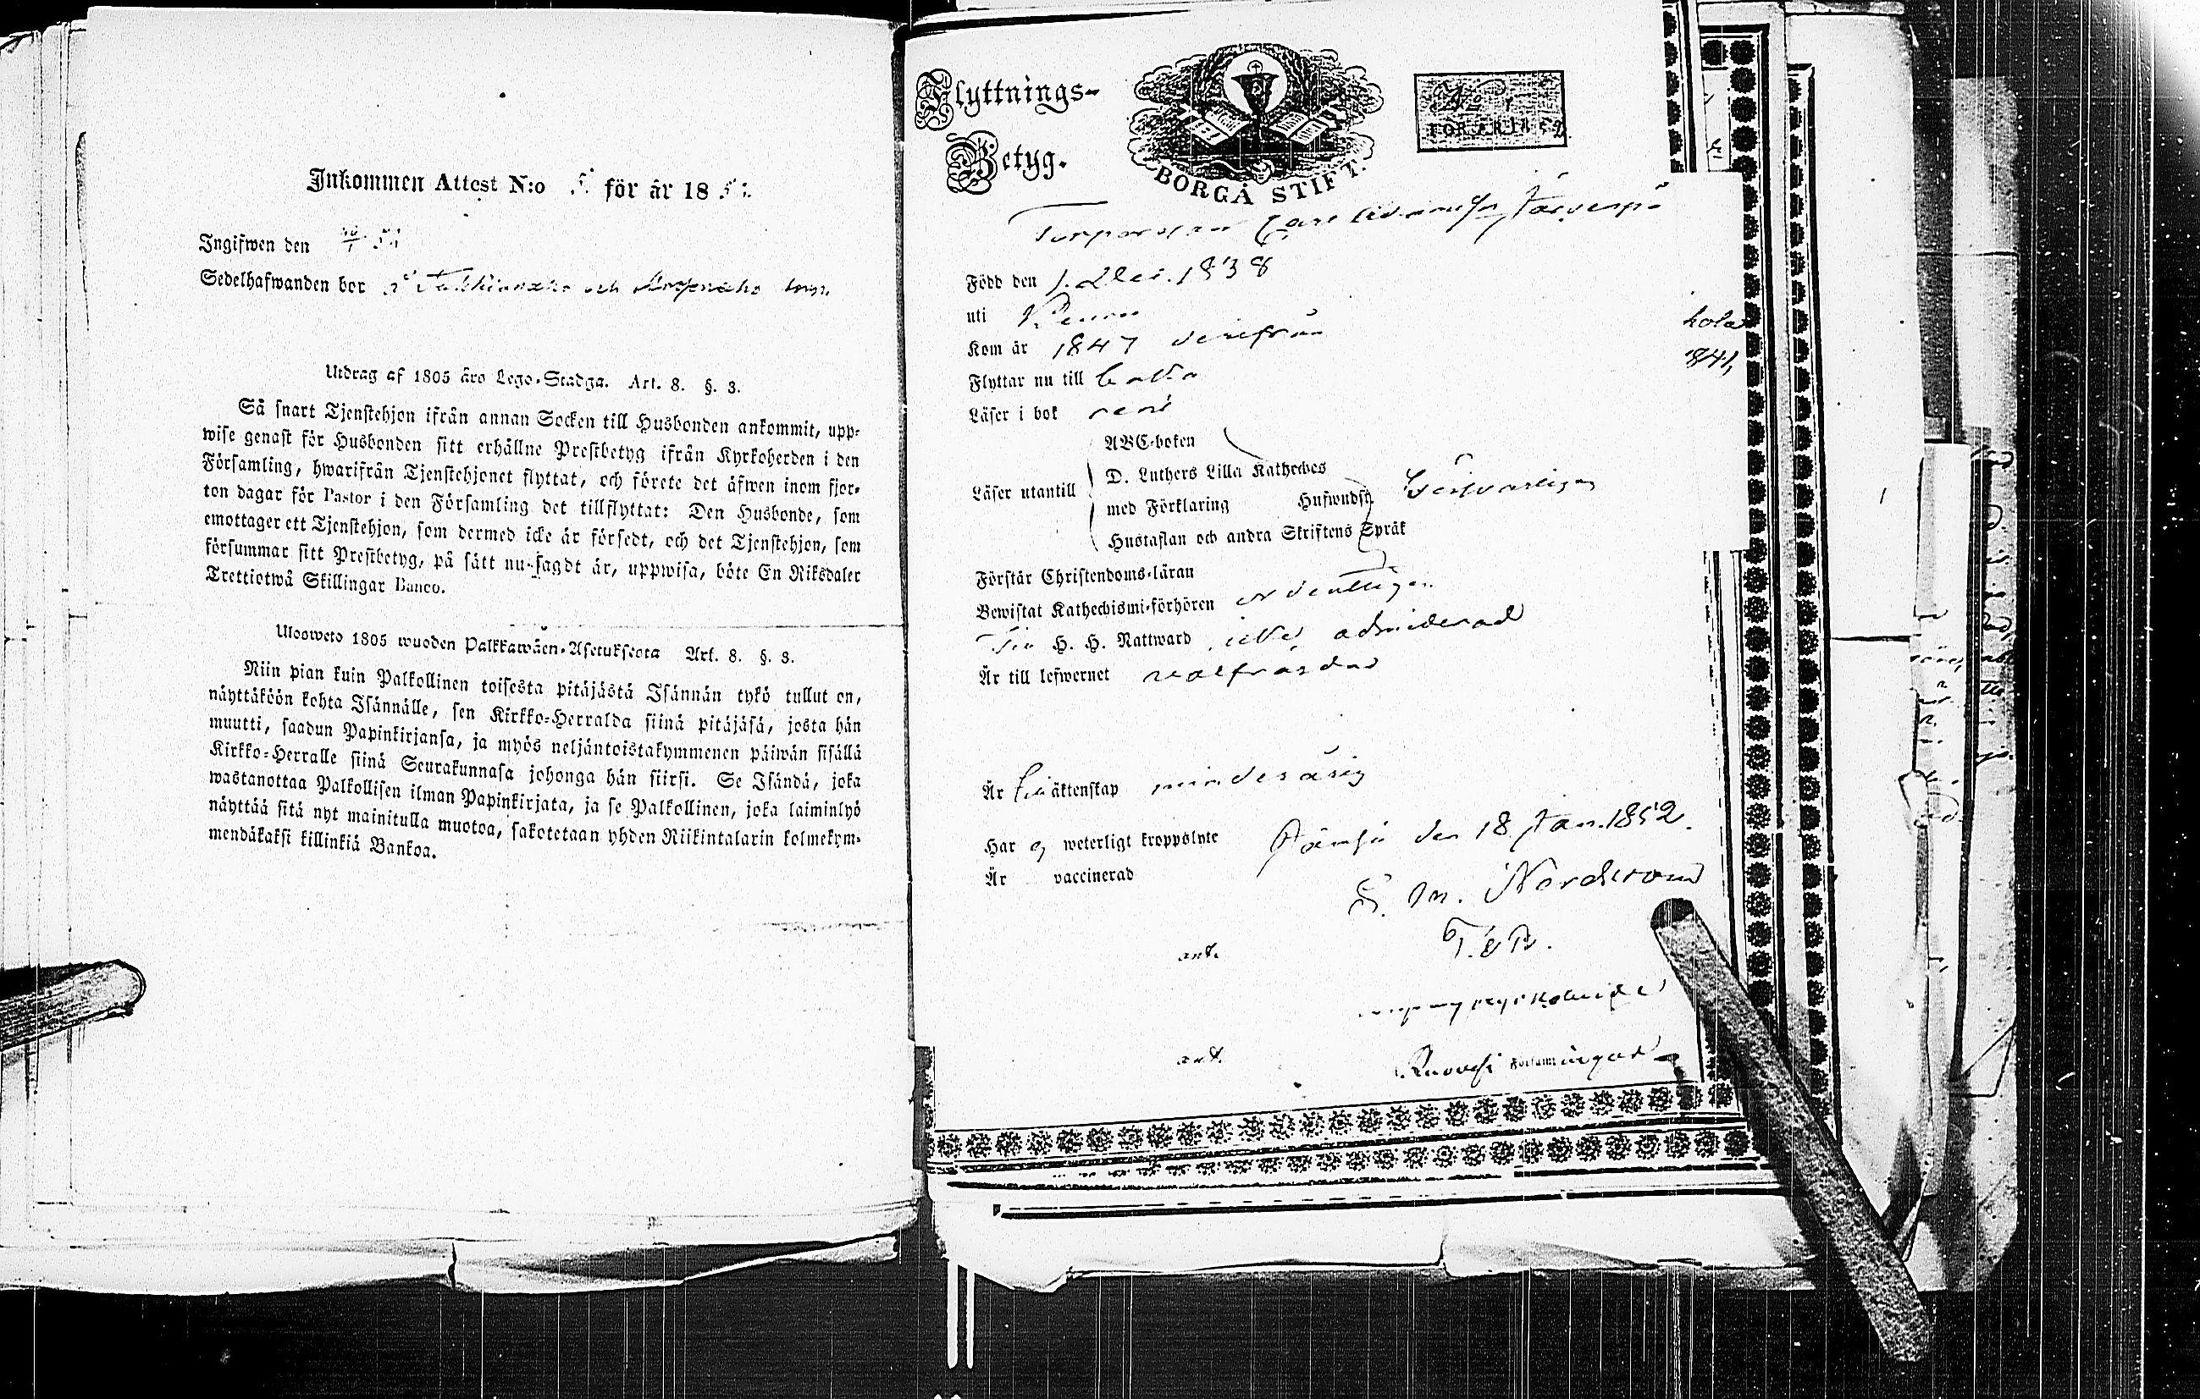 Inkommen Attest N:o 5 för år 18
Ingifwen den
Sedelhafwanden bor å och
Utdrag af 1805 års Lego-Stadga. Art. 8. §. 3.
Så snart Tjenstehjon ifrån annan Socken till Husbonden ankommit, upp-
wise genast för Husbonden sitt erhållne Prestbetyg ifrån Kyrkoherden i den
Församling, hwarifrån Tjenstehjonet flyttat, och förete det äfwen inom fjor-
ton dagar för Pastor i den Församling det tillflyttat: Den Husbonde, som
emottager ett Tjenstehjon, som dermed icke är försedt, och det Tjenstehjon, som
försummar sitt Prestbetyg, på sätt nu sagdt är, uppwisa, böte En Riksdaler
Trettiotwå Skillingar Banco.
Ulosweto 1805 wuoden Palkkawäen-Asetuksesta Art. 8. §. 3.
Niin pian kuin Palkollinen toisesta pitäjästä Isännän tykö tullut on,
näyttäköön kohta Isännälle, sen Kirkko-Herralda siinä pitäjäsä, josta hän
muutti, saadun Papinkirjansa, ja myös neljäntoistakymmenen päiwän sisällä
Kirkko-Herralle siinä Seurakunnasa johonga hän siirsi. Se Isändä, joka
wastanottaa Palkollisen ilman Papinkirjata, ja se Palkollinen, joka laiminlyö
näyttää sitä nyt mainitulla muotoa, sakotetaan yhden Riikintalarin kolmekym-
mendäkaksi killinkiä Bankoa.
Flyttnings-
Betyg.
BORGÅ STIFT.
FÖR ÅR 1852.
Torparson Carl
Född den 1. Dec. 1838
uti
Kom år 1847 derifrån
Flyttar nu till
Läser i bok rent
Läser utantill
ABC-boken
D. Luthers Lilla Kateches
med Förklaring Hufwudst.
Hustaflan och andra Skriftens Språk
Försvarligen
Förstår Christendoms-läran
Bewistat Kathechismi-förhören ordentligen
Till H. H. Nattward icke admitterad
Är till lefwernet wälfräjdad
Är till äktenskap minderårig
Har ej weterligt kroppslyte
Är vaccinerad
Jämsä den 18 Jan. 1852.
S. M. Nordstrand
ant.
ant.
Ruovesi Församlingar
hola
841,